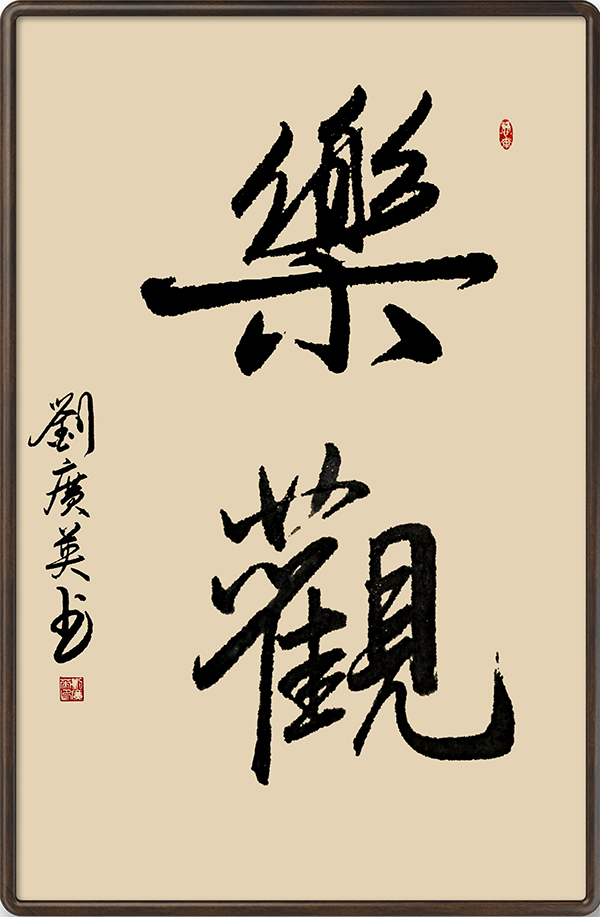 樂觀
劉廣英书